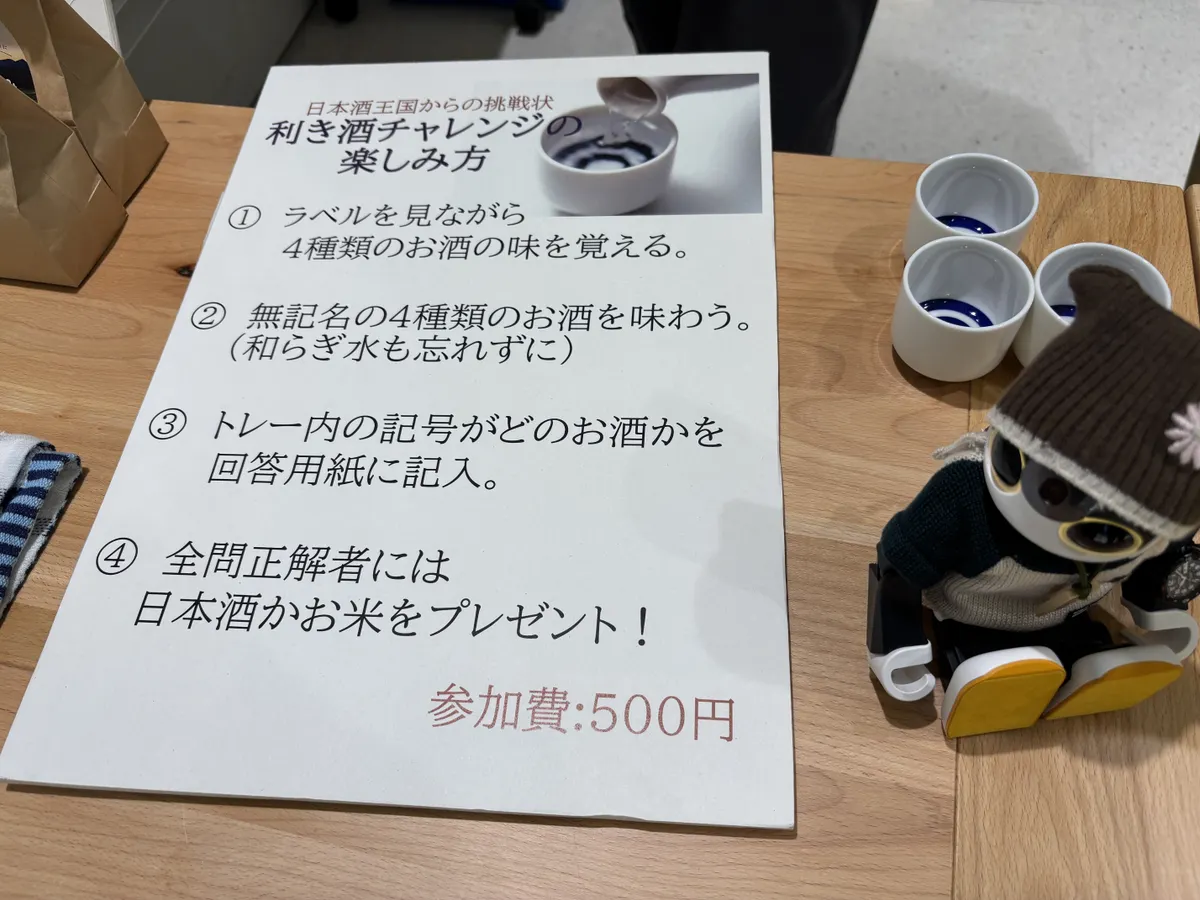 日本酒王国からの挑戦状
利き酒チャレンジの
楽しみ方
① ラベルを見ながら
4種類のお酒の味を覚える。
② 無記名の4種類のお酒を味わう。
(和らぎ水も忘れずに)
③ トレー内の記号がどのお酒かを
回答用紙に記入。
④ 全問正解者には
日本酒かお米をプレゼント!
参加費:500円